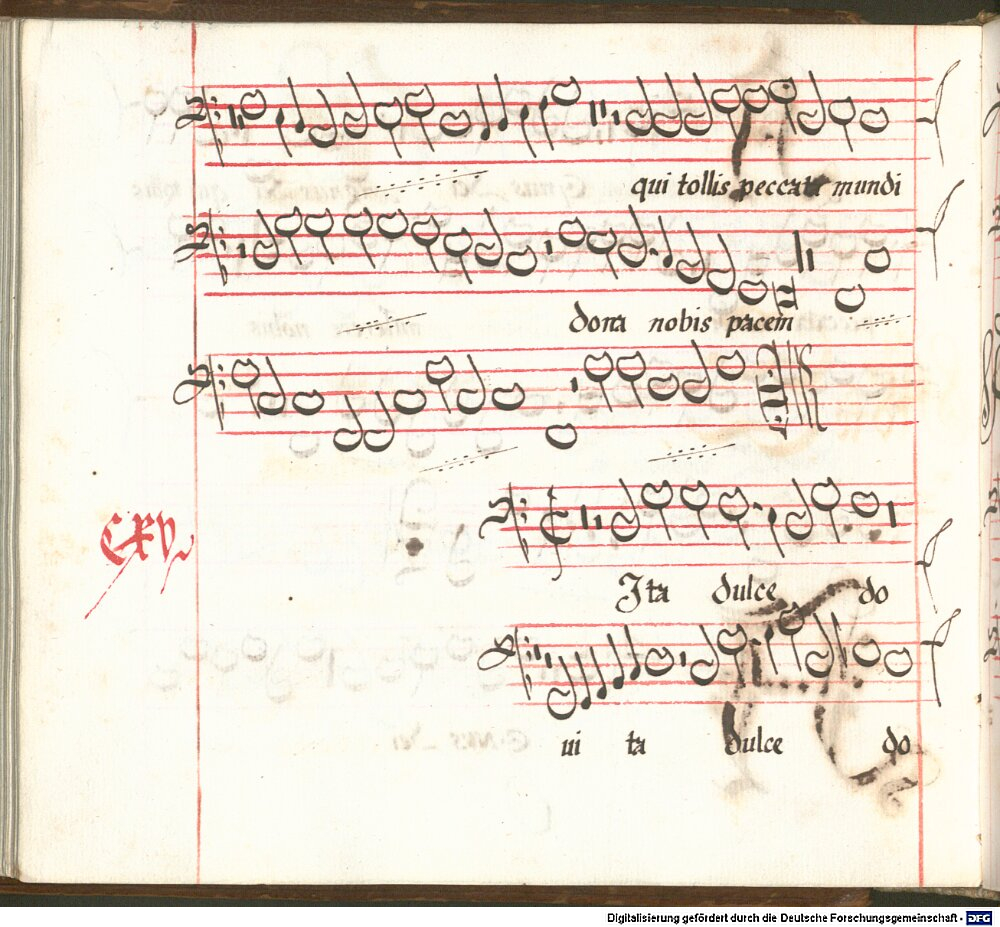 qui tollis peccata mundi
dona nobis pacem
CXV
Ita dulce do
ui ta dulce do
Digitalisierung gefördert durch die Deutsche Forschungsgemeinschaft - DFG